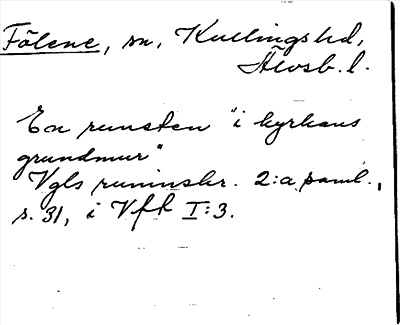 Fölene, sn, Kullings hd,
Älvsb. l.
En runsten "i kyrkans
grundmur"
Vgls runinskr. 2:a saml.,
s. 31, i Vft I:3.